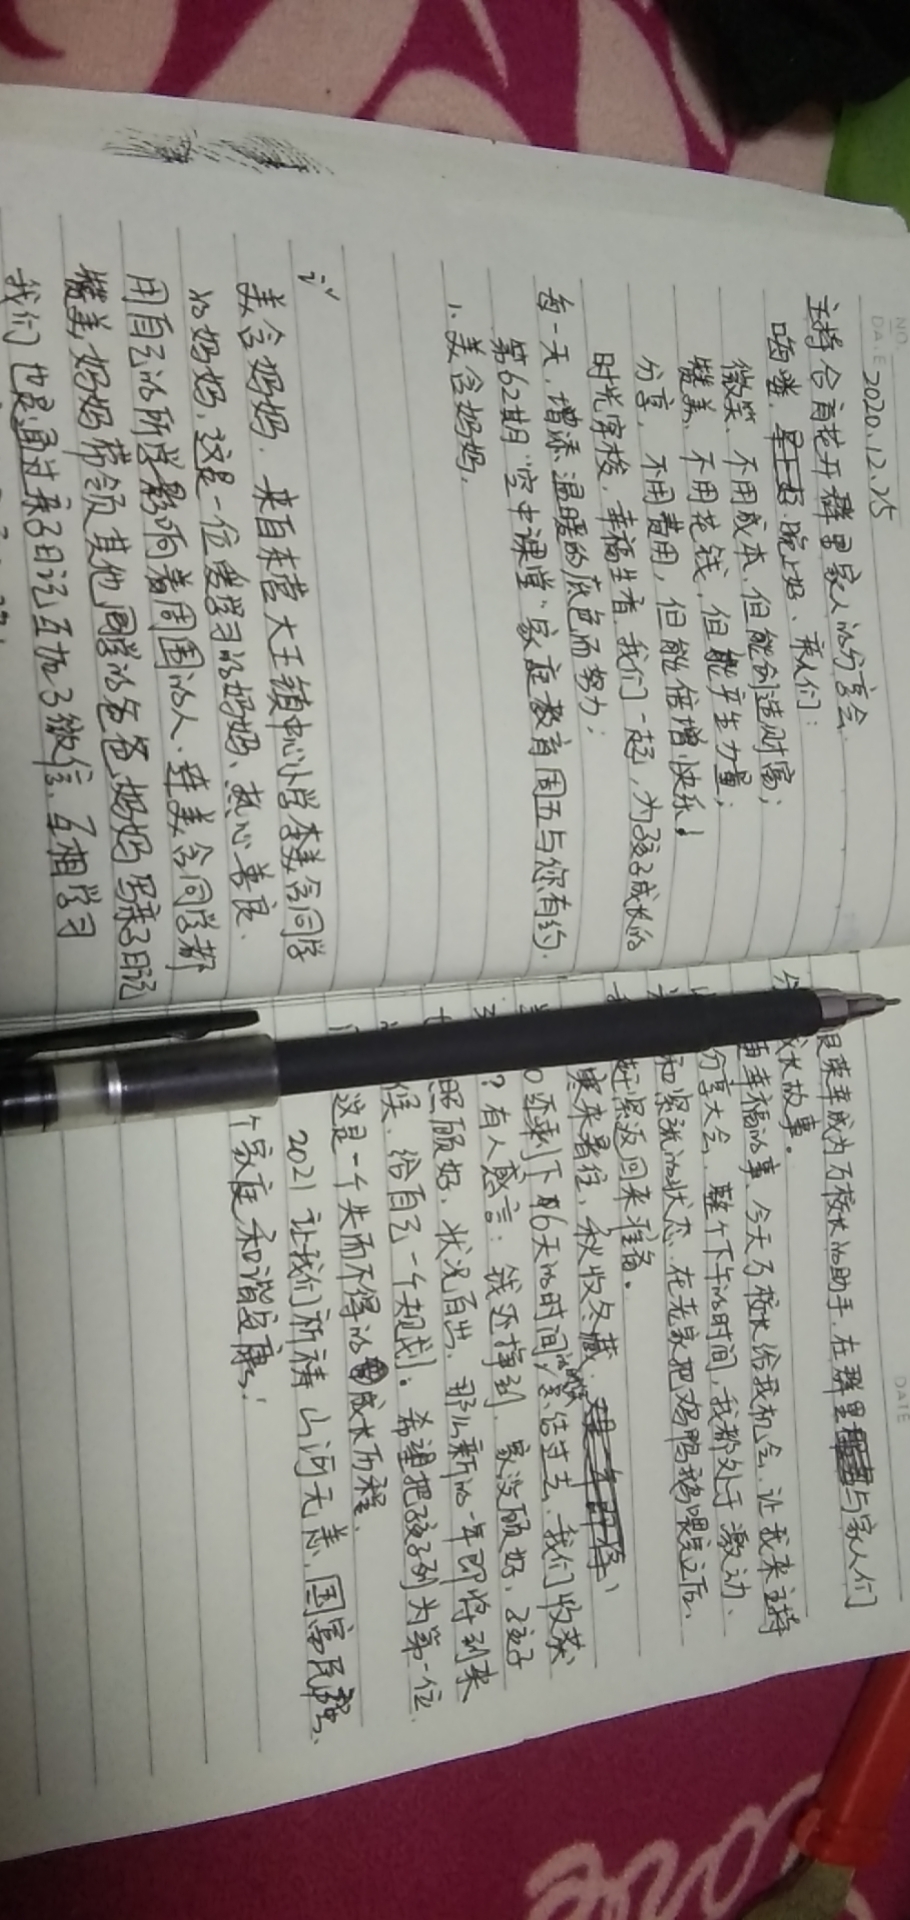 NO.
DATE 2020.12.25
主持合育花开群里家人的分享会.
嗨喽,晚上好、亲人们:
微笑、不用成本,但能创造财富;
赞美、不用花钱,但能产生力量;
分享、不用费用,但能倍增快乐!
时光穿梭,幸福生香,我们一起,为孩子成长的
每一天,增添温暖的底色而努力;
第62期"空中课堂"家庭教育周五与你有约.
1.美含妈妈,
美含妈妈.来自末营大王镇中心小学李美含同学
的妈妈,这是一位爱学习的妈妈、热心善良.
用自己的所学影响着周围的人.
妈妈带领其他同学的爸爸妈妈写亲子日记
我们也是通过亲子日记互加了微信,互相学习
DATE
很荣幸成为万校长的助手,在群里与家人们
成长故事。
幸福的事、今天万校长给我机会,让我来主持
分享大会,整个下午的时间,我都处于激动、
和紧张的状态.在老家把鸡鸭鹅喂完之后、
赶紧返回来准备。
寒来暑往,秋收冬藏.
还剩下6天的时间,我们收获
?有人感言:钱还挣到,家没顾好,孩子
照顾好,状况百出.那么新的一年即将到来
候、给自己一个规划:希望把孩子列为第一位.
这是一个失而不得的成长历程.
2021让我们祈祷山河无恙,国富民强、
个家庭和谐安康!